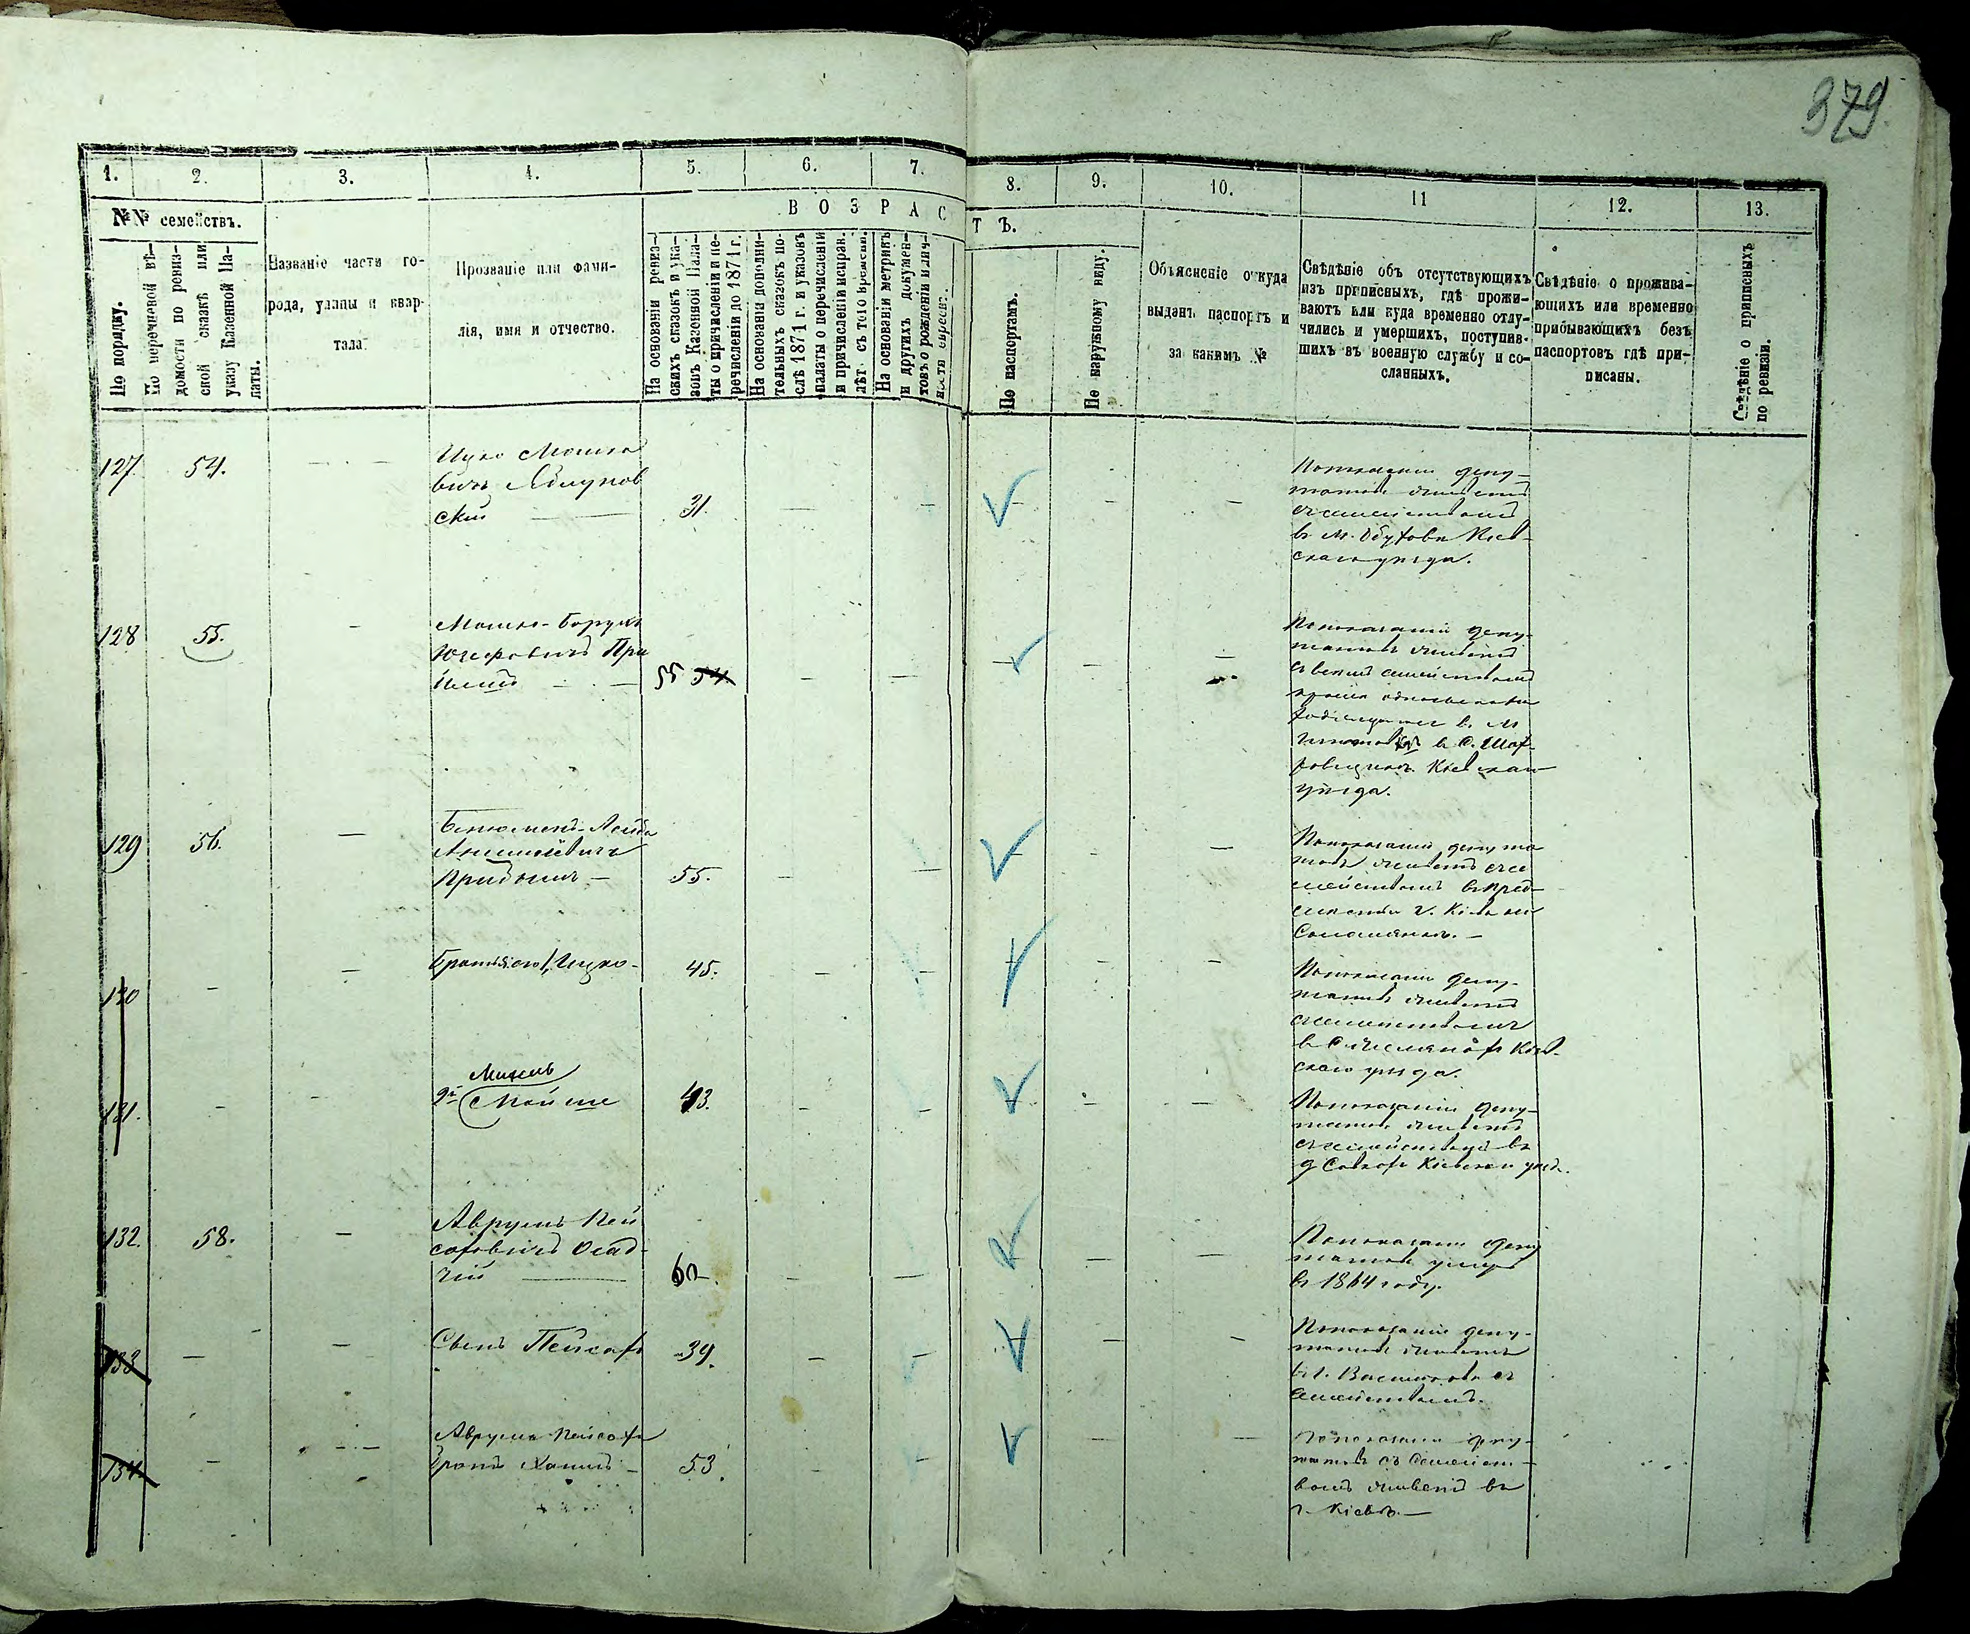 379.
1.
2.
3.
4.
5.
6.
7.
8.
9.
10.
11
12.
13.
№№ семействъ.
По порядку.
По перечневой вѣ-
домости по ревиз-
ской сказкѣ или
указу Казенной Па-
латы.
Названіе части го-
рода, улицы и квар-
тала.
Прозваніе или фами-
лія, имя и отчество.
ВОЗРАС
ТЪ.
На основаніи ревиз-
скихъ сказокъ и ука-
зовъ Казенной Пала-
ты о причисленіи и пе-
речисленіи до 1871 г.
На основаніи дополни-
тельныхъ сказокъ по-
слѣ 1871 г. и указовъ
палаты о перечисленіи
и причисленіи исправ.
лѣт. съ того времени.
На основаніи метрикъ
и другихъ докумен-
товъ о рожденіи и лич-
ности евреевъ.
По паспортамъ.
По наружному виду.
Объясненіе откуда
выданъ паспортъ и
за какимъ №
Свѣдѣніе объ отсутствующихъ
изъ приписныхъ, гдѣ прожи-
ваютъ или куда временно отлу-
чились и умершихъ, поступив-
шихъ въ военную службу и со-
сланныхъ.
Свѣдѣніе о прожива-
ющихъ или временно
прибывающихъ безъ
паспортовъ гдѣ при-
писаны.
Свѣдѣніе о приписныхъ
по ревизіи.
127.
54.
Ицко Мошко
вичъ
ский
31.
По показанію депу-
татовъ живетъ
съ семействомъ
въ м. Обуховѣ Кіев-
скаго уѣзда.
128
55.
Мошко-Борухъ
Юсефовичъ При
55 54.
По показанію депу-
татовъ живетъ
съ всемъ семействомъ
кроме
въ м
в с. Шаф-
Кіевскаго
уѣзда.
129
56.
Бенюменъ-Лейба
55.
По показанію депута
товъ живетъ съ се
мействомъ въ пред-
мѣстьи г. Кіева на
Соломянкѣ. —
130
Братъ его Ицко-
45.
По показанію депу-
татовъ живетъ
съ семействомъ
Кіев-
скаго уѣзда.
131.
Михель
2й Мойше
43.
По показанію депу-
татовъ живетъ
съ семействомъ въ
д Совкахъ Кіевскаго уѣзд.
132.
58.
Аврумъ Пей
саховичъ Осад-
чій
60.
По показанію депу
татовъ умеръ
въ 1864 году.
133
Сынъ Пейсахъ
39.
По показанію депу-
татовъ живетъ
въ г. Василькове съ
семействомъ.
134
Аврума Пейсаха
братъ Хаимъ —
53.
По показанію депу-
татовъ съ семейст-
вомъ живетъ въ
г. Кіевѣ. —